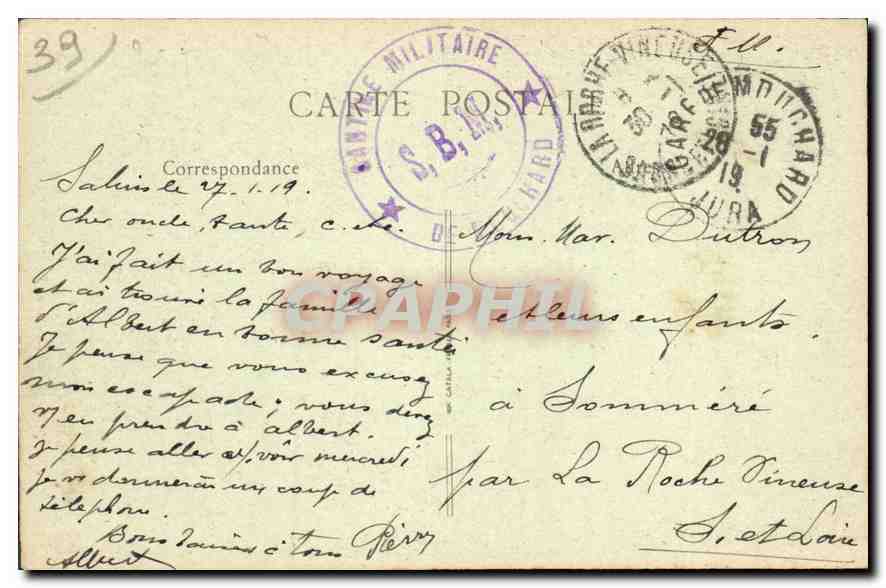 39
F. M.
CARTE POSTALE
CANTINE MILITAIRE
S.B.M.
DE MOUCHARD
LA ROCHE VINEUSE
30
GARE DE MOUCHARD
28 55
-1
19
JURA
Correspondance
Salins le 27.1.19.
Cher oncle, tante, c.
J'ai fait un bon voyage
et ai trouvé la famille
d'Albert en bonne santé
Je pense que vous excusez
mon escapade; vous devez
v/en prendre à Albert.
Je pense aller v/voir mercredi
Je v/ donnerai un coup de
téléphone.
Bons baisers à tous Pierre
Albert
Mons. Mar. Dutron
et leurs enfants
à Sommeré
par La Roche Vineuse
S. et Loire
IMP. CATALA
CPAPHIL